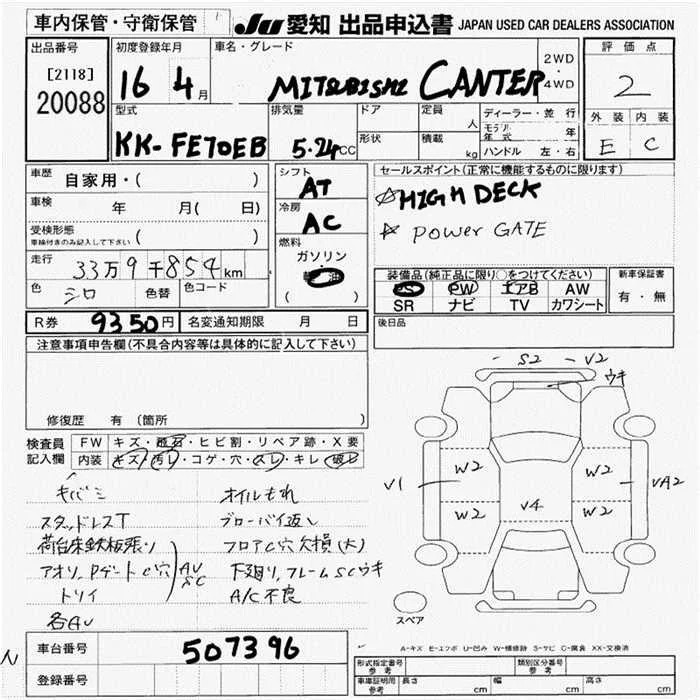 車内保管・守衛保管
JU 愛知 出品申込書 JAPAN USED CAR DEALERS ASSOCIATION
出品番号
[2118]
20088
初度登録年月
16 4月
車名・グレード
MITSUBISHI CANTER
2WD
・
4WD
評価点
2
外装 内装
E C
型式
KK-FE70EB
排気量
5.24CC
ドア
形状
定員
人
積載
kg
ディーラー・並行
モデル年式 年
ハンドル 左・右
車歴
自家用・( )
車検
年 月( 日)
受検形態
車検付きのみ記入して下さい ( )
走行
33万9千854km
色
シロ
色替
色コード
シフト
AT
冷房
AC
燃料
ガソリン
軽油
( )
セールスポイント(正常に機能するものに限ります)
☆HIGH DECK
☆ POWER GATE
装備品(純正品に限り○をつけてください)
PS PW エアB AW
SR ナビ TV カワシート
新車保証書
有・無
後日品
R券 9350円
名変通知期限 月 日
注意事項申告欄(不具合内容等は具体的に記入して下さい)
修復歴 有 (箇所 )
検査員
記入欄
FW キズ・飛石・ヒビ割・リペア跡・X要
内装 キズ・汚レ・コゲ・穴・スレ・キレ・破レ
キバミ
スタッドレスT
荷台床鉄板張り
アオリ、Pゲート C穴
トリイ
AU
SC
各AU
オイルもれ
ブローバイ返し
フロアC穴欠損(大)
下廻り、フレームSCウキ
A/C不良
S2 V2
ウキ
V1
W2
W2
V4
W2
W2
VA2
スペア
A-キズ E-エクボ U-凹み W-補修跡 S-サビ C-腐食 XX-交換済
車台番号
507396
登録番号
形式指定番号
参考
類別区分番号
参考
車庫証明用
参考
長さ cm
幅 cm
高さ cm
N